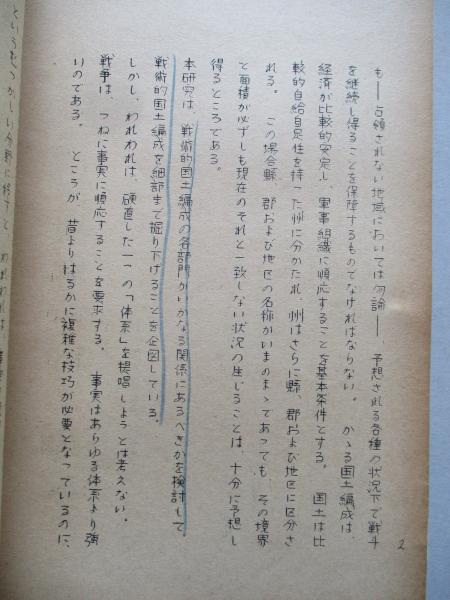 2
も――占領されない地域においては勿論――、予想される各種の状況下で戦斗
を継続し得ることを保障するものでなければならない。 かゝる国土編成は、
経済が比較的安定し、軍事組織に順応することを基本条件とする。 国土は比
較的自給自足性を持った州に分かたれ、州はさらに縣、郡および地区に区分さ
れる。 この場合縣、郡および地区の名称がいまのまゝであっても、その境界
と面積が必ずしも現在のそれと一致しない状況の生じることは、十分に予想し
得るところである。
本研究は、戦術的国土編成の各部門がいかなる関係にあるべきかを検討して
戦術的国土編成を細部まで掘り下げることを企図している。
しかし、われわれは、硬直した一つの「体系」を提唱しようとは考えない。
戦争は、つねに事実に順応することを要求する。 事実はあらゆる体系より強
いのである。 ところが、昔よりはるかに複雑な技巧が必要となっているのに、
というむつかしい分野に終すと、われわれは